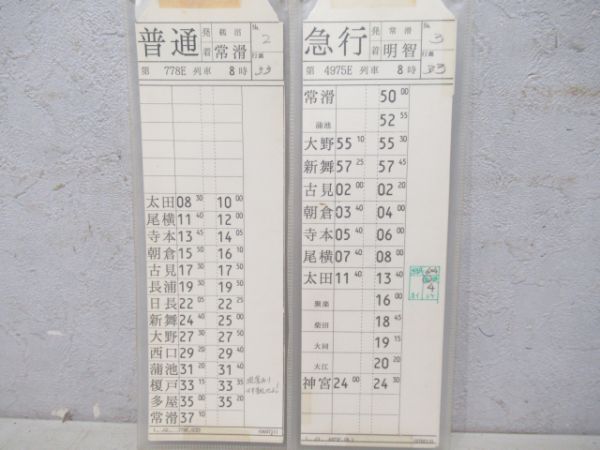 普通 発 鵜沼 № 2
着 常滑 行路 33
第 778E 列車 8時
太田 08 30 10 00
尾横 11 40 12 00
寺本 13 45 14 05
朝倉 15 50 16 10
古見 17 30 17 50
長浦 19 30 19 50
日長 22 05 22 25
新舞 24 40 25 00
大野 27 30 27 50
西口 29 20 29 40
蒲池 31 20 31 40
榎戸 33 15 33 35
多屋 35 00 35 20
常滑 37 10
急行 発 常滑 № 3
着 明智 行路 33
第 4975E 列車 8時
常滑 50 00
蒲池 52 55
大野 55 10 55 30
新舞 57 25 57 45
古見 02 00 02 20
朝倉 03 40 04 00
寺本 05 40 06 00
尾横 07 40 08 00
太田 11 40 13 40
聚楽 16 00
柴田 18 45
大同 19 15
大江 20 20
神宮 24 00 24 30